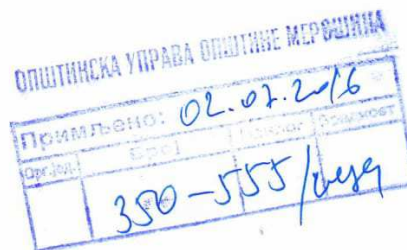 ОПШТИНСКА УПРАВА ОПШТИНЕ МЕРОШИНА
Примљено: 02.07.2016
Орг.јед. Број Прилог Вредност
350-555/